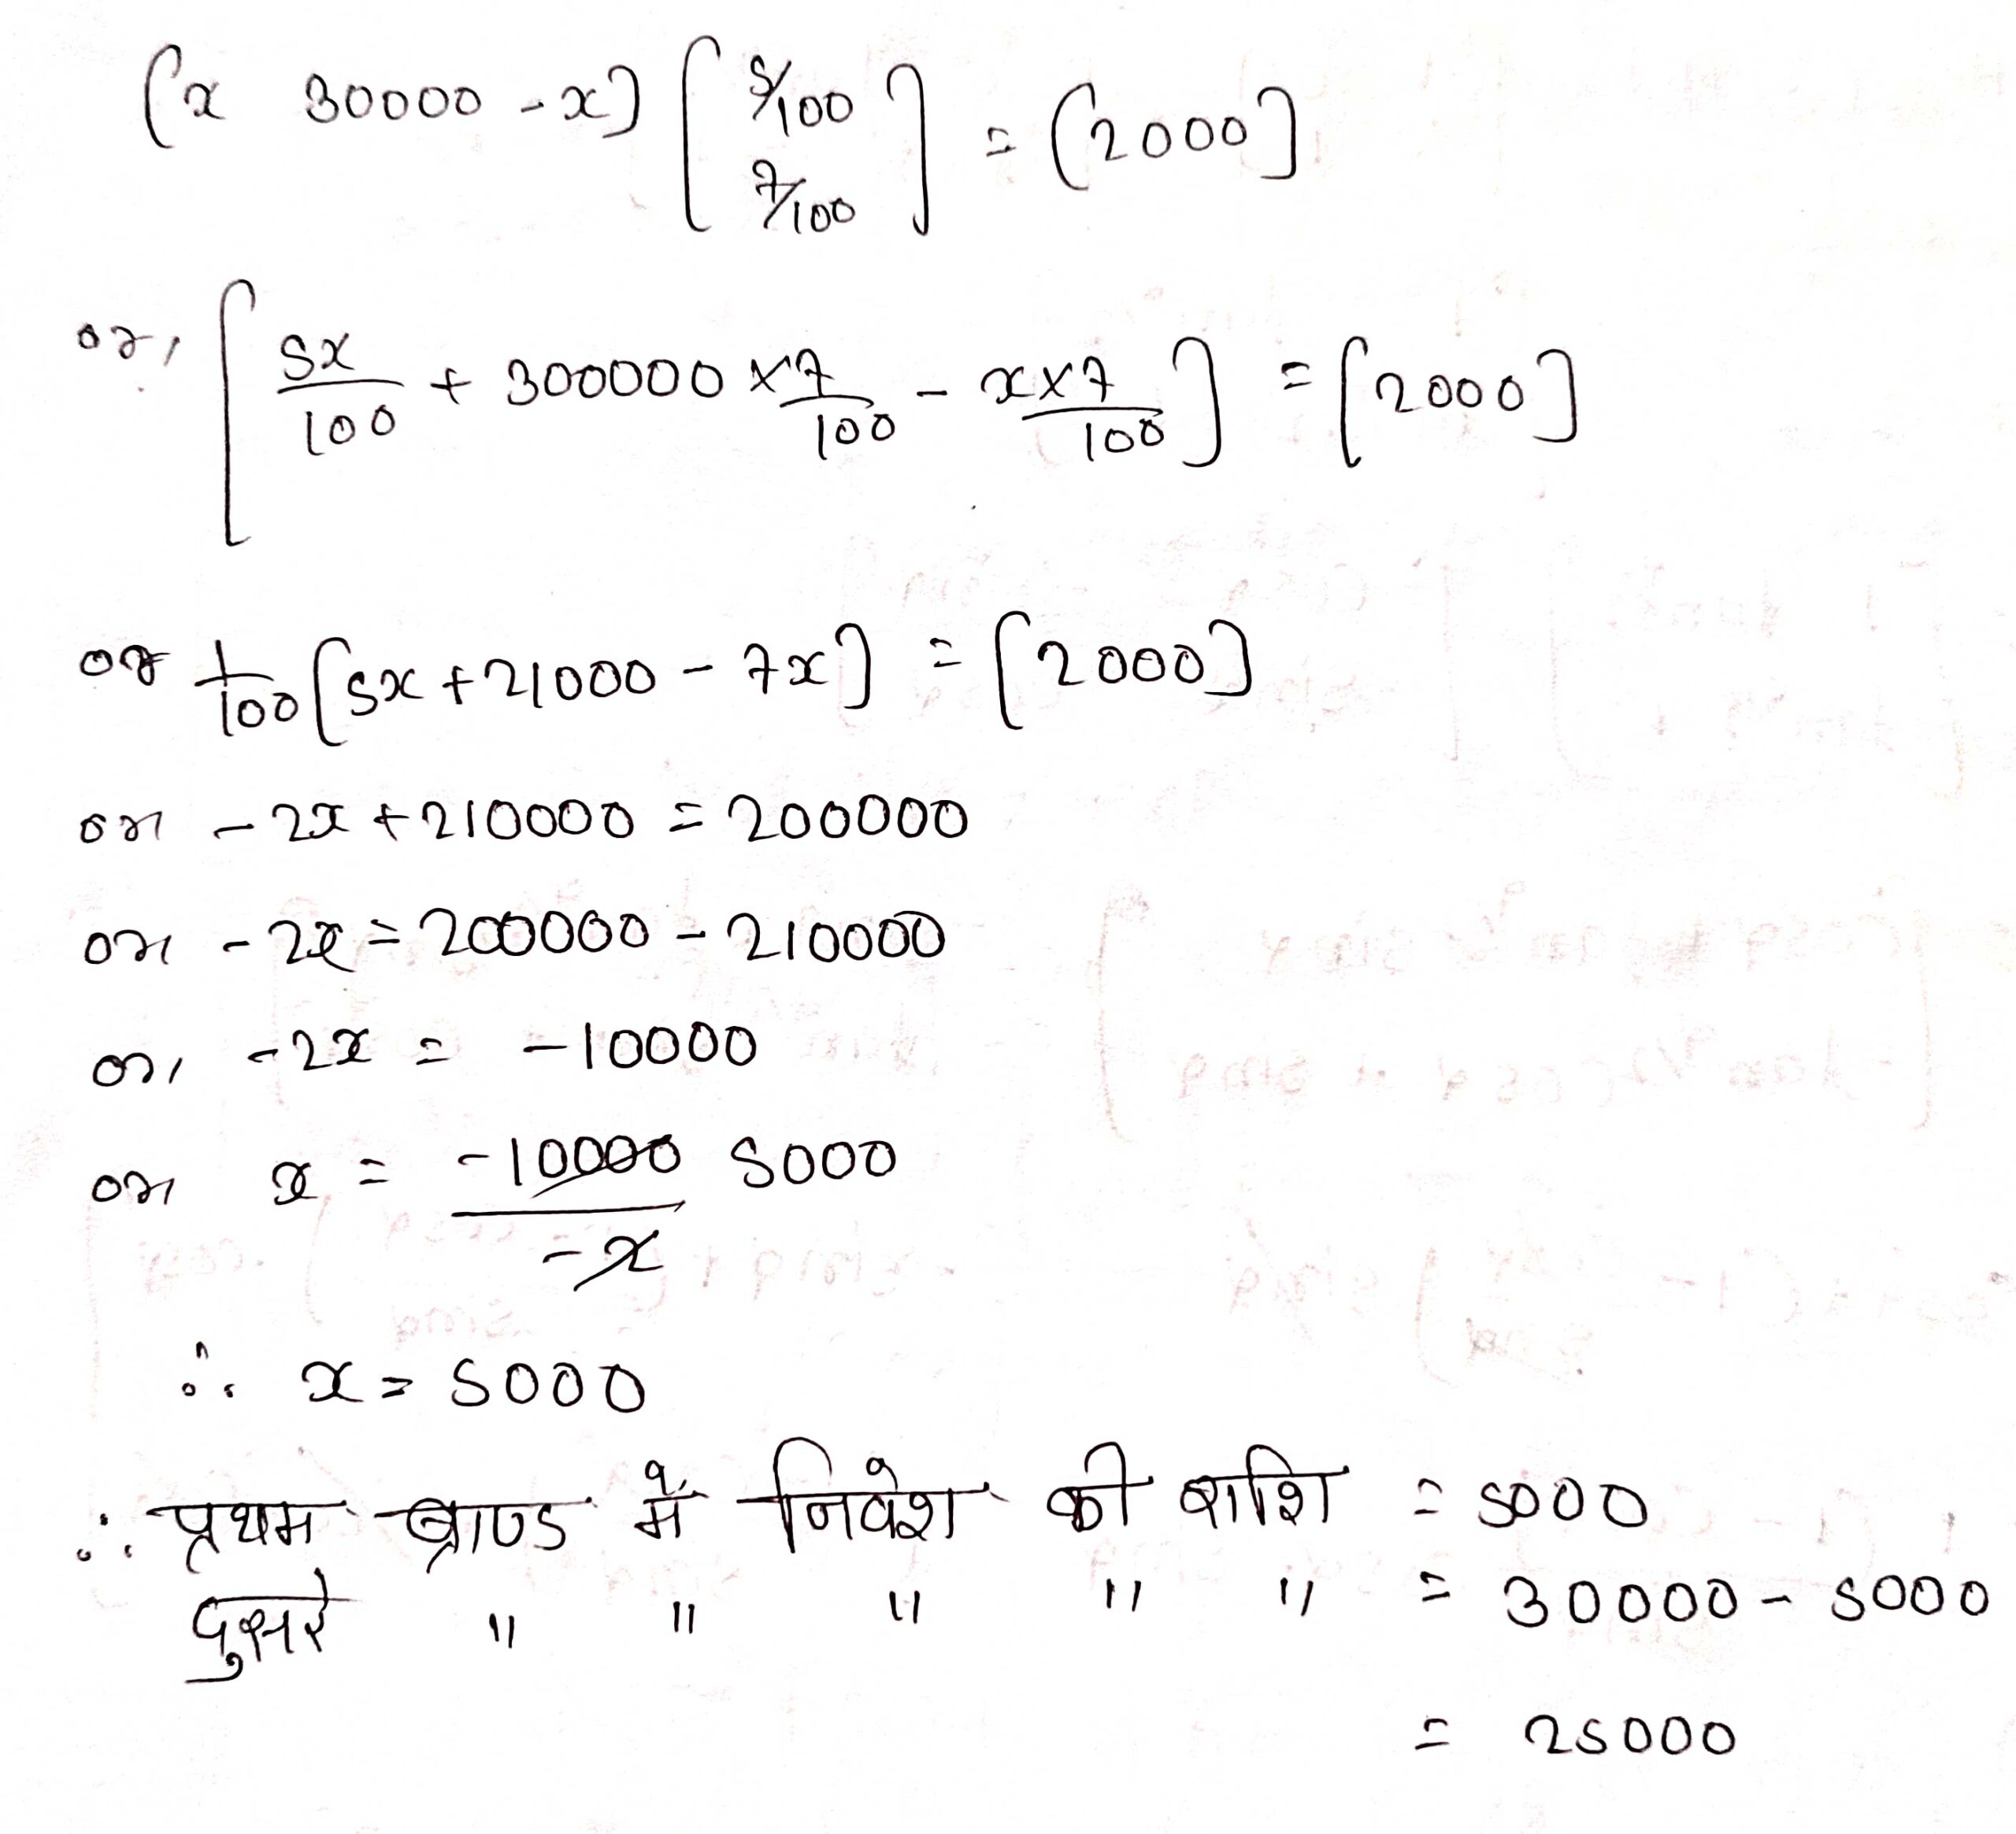 [x 30000 - x] [5/100 7/100] = [2000]
or, [5x/100 + 300000 x 7/100 - x x 7/100] = [2000]
or 1/100 [5x + 21000 - 7x] = [2000]
or, -2x + 210000 = 200000
or, -2x = 200000 - 210000
or, -2x = -10000
or, x = -10000/-2 5000
∴ x = 5000
∴ प्रथम ब्राण्ड में निवेश की राशि = 5000
दुसरे " " " " " = 30000 - 5000
= 25000